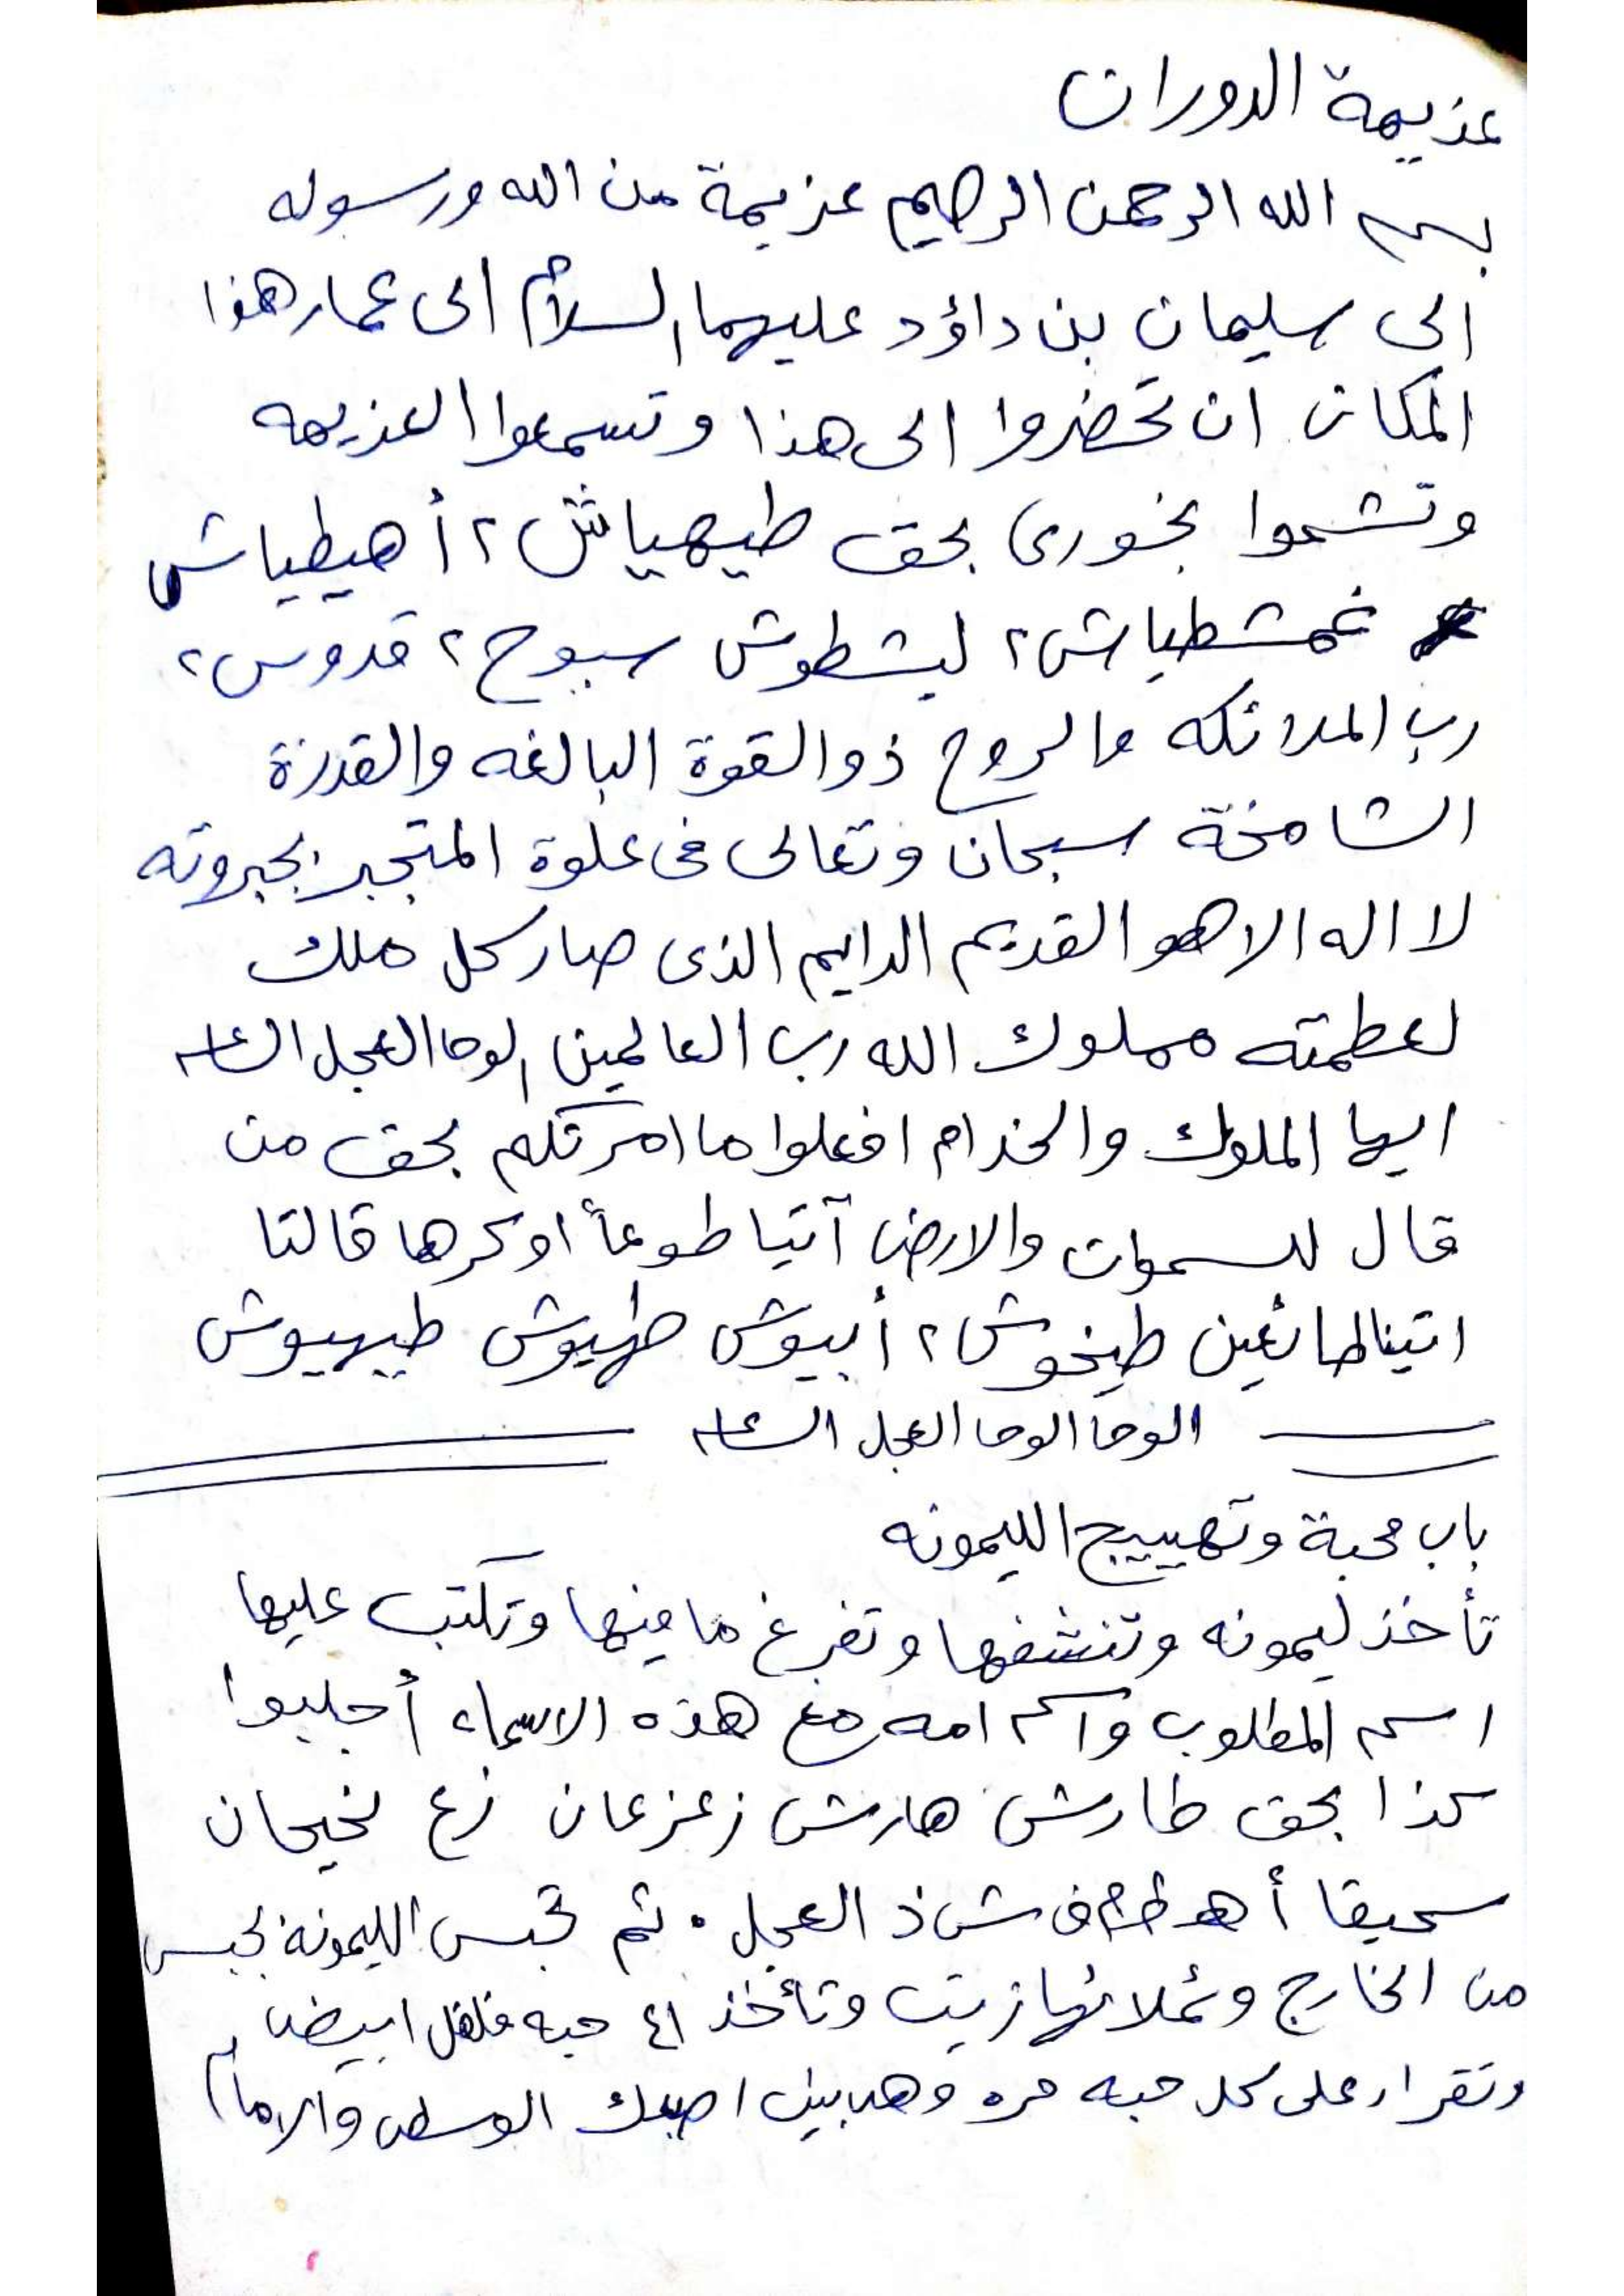 عزيمة الدوران
بسم الله الرحمن الرحيم عزيمة من الله ورسوله
الى سليمان بن داؤد عليهما السلام الى عمار هذا
المكان ان تحضروا الى هذا وتسمعوا العزيمه
وتشموا بخورى بحق طيهياش ٢ أهيطياش
غمشطياش ٢ ليشطوش سبوح ٢ قدوس ٢
رب الملائكه والروح ذو القوة البالغه والقدرة
الشامخة سبحان وتعالى فى علوة المتجبر بجبروته
لا اله الا هو القديم الدايم الذى صار كل ملك
لعظمته مملوك الله رب العالمين الوحا العجل الساعه
ايها الملوك والخدام افعلوا ما امرتكم بحق من
قال للسموات والارض آتيا طوعاً او كرها قالتا
اتينا طائعين طيخوش ٢ أبيوش طهيوش طيهيوش
الوحا الوحا العجل الساعه
باب محبة وتهييج الليمونه
تأخذ ليمونه وتنشفها وتفرغ ما فيها وتكتب عليها
اسم المطلوب واسم امه مع هذه الاسماء أجلبوا
كذا بحق طارش هارش زعزعان زع نخيحان
سحيقا أ هـ ط م ف ش ذ العجل . ثم تجبس الليمونة بجبس
من الخارج وتملائها زيت وتأخذ ٤١ حبه فلفل ابيض
وتقراء على كل حبه مره وهى بين اصبعك الوسطى والابهام
٢